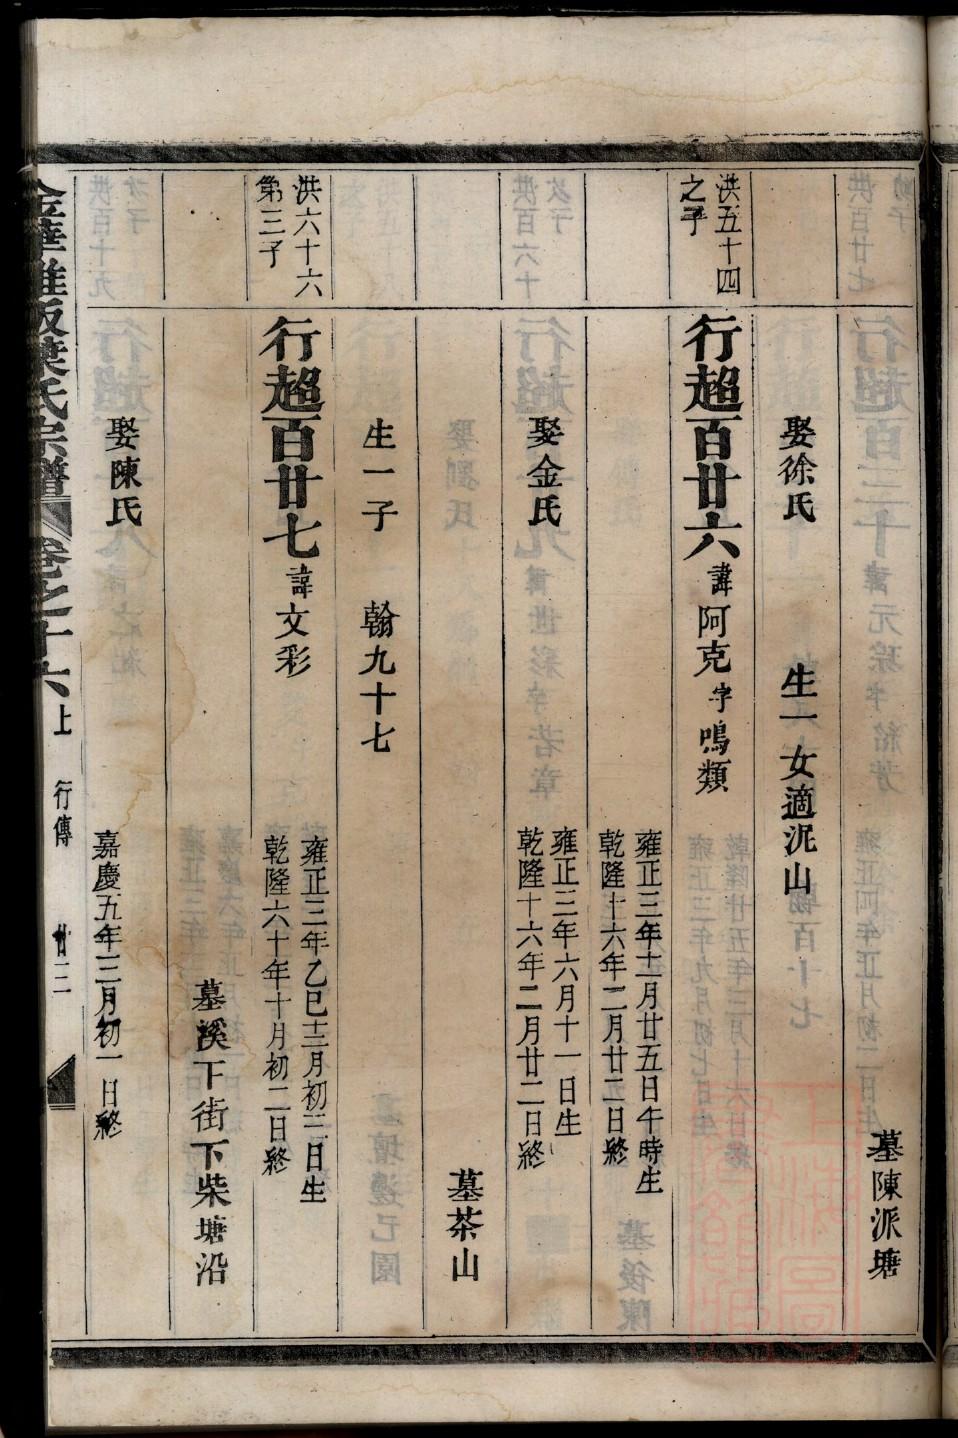 墓陳派塘
娶徐氏 生一女適泥山
洪五十四
之子
行超百廿六 諱阿克 字鳴類
雍正三年十一月廿五日午時生
乾隆十六年二月廿二日終
娶金氏
雍正三年六月十一日生
乾隆十六年二月廿二日終
墓茶山
生一子 翰九十七
洪六十六
第三子
行超百廿七 諱文彩
雍正三年乙巳十二月初三日生
乾隆六十年十月初二日終
墓溪下街下柴塘沿
娶陳氏
嘉慶五年三月初一日終
氏宗譜 卷之十六上 行傳 廿三